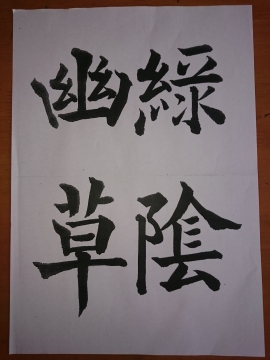 綠陰
幽草